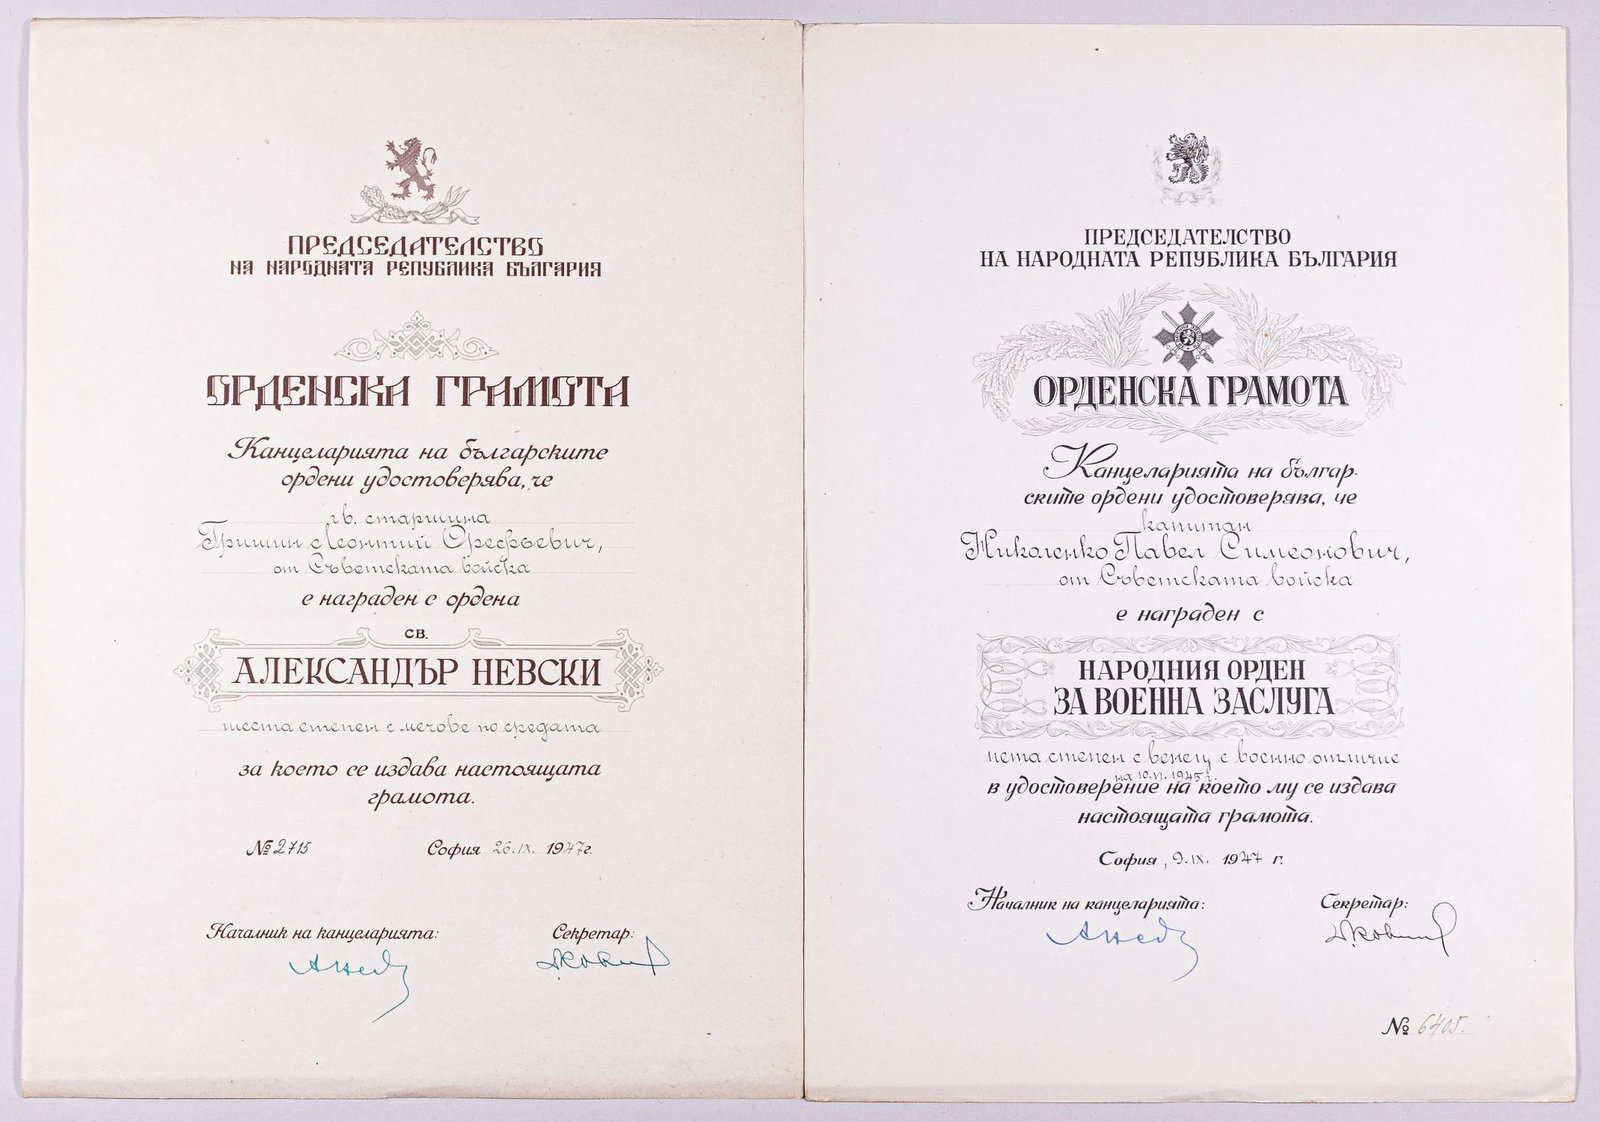 ПРЕДСЕДАТЕЛСТВО
НА НАРОДНАТА РЕПУБЛИКА БЪЛГАРИЯ
ОРДЕНСКА ГРАМОТА
Канцеларията на българските
ордени удостоверява, че
гв. старшина
Гришин Леонтий Орефьевич,
от Съветската войска
е награден с ордена
СВ.
АЛЕКСАНДЪР НЕВСКИ
шеста степен с мечове по средата
за което се издава настоящата
грамота.
№ 2715 София 26.IX. 1947г.
Началник на канцеларията: Секретар:
ПРЕДСЕДАТЕЛСТВО
НА НАРОДНАТА РЕПУБЛИКА БЪЛГАРИЯ
ОРДЕНСКА ГРАМОТА
Канцеларията на българ-
ските ордени удостоверява, че
капитан
Николенко Павел Симеонович,
от Съветската войска
е награден с
НАРОДНИЯ ОРДЕН
ЗА ВОЕННА ЗАСЛУГА
пета степен с венец с военно отличие
на 10.VI.1945 г.
в удостоверение на което му се издава
настоящата грамота.
София, 9.IX. 1947 г.
Началник на канцеларията: Секретар:
№ 6405.